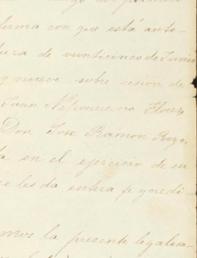 firma con que está auto-
fecha de veinticinco de Junio
y nueve sobre cesion de
Juan Nepomuceno Flores
Don José Ramon Royo,
en el ejercicio de su
se les da entera fe y credi-
mos la presente legaliza-